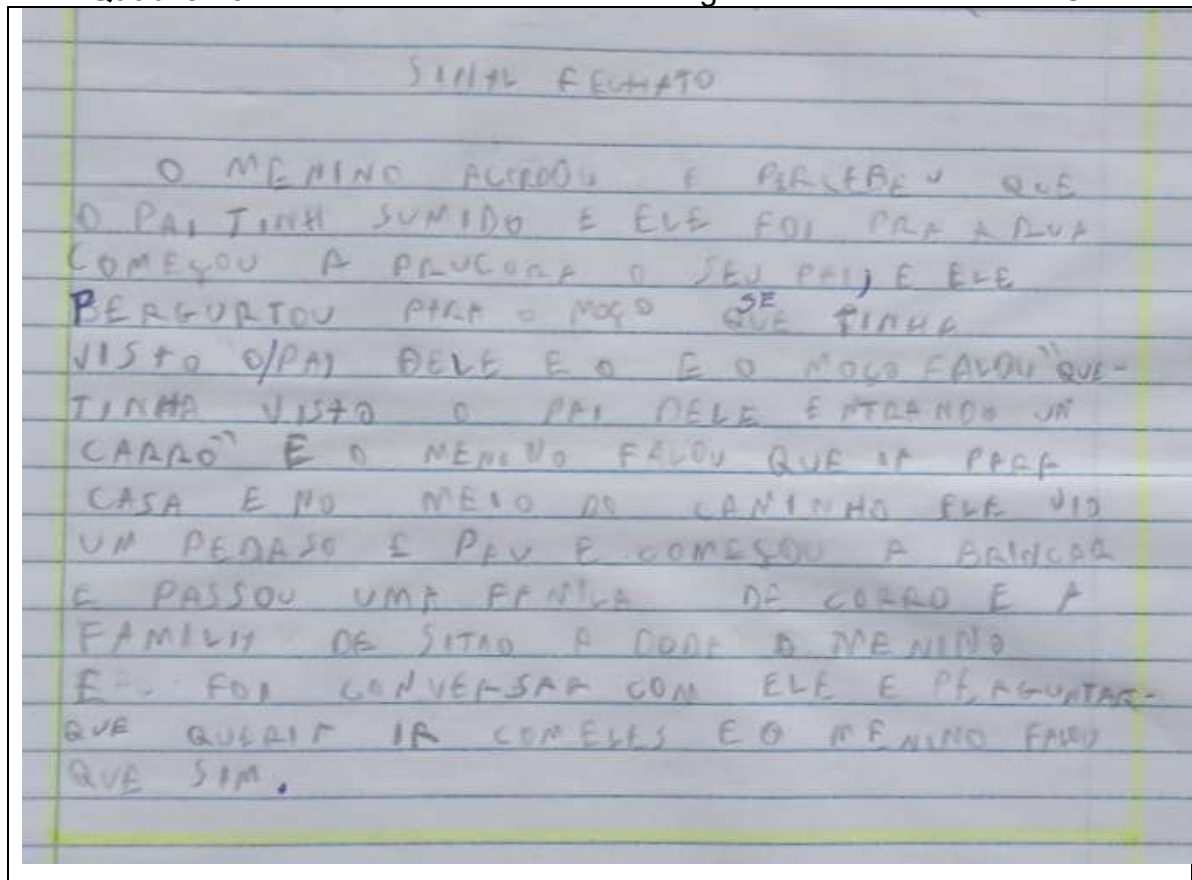 SINAL FECHATO
O MENINO ACORDOU E PERCEBEU QUE
O PAI TINH SUMIDO E ELE FOI PRA A RUA
COMEÇOU A PRUCORA O SEU PAI, E ELE
PERGURTOU PARA O MOÇO SE QUE TINHA
VISTO O/PAI DELE E O E O MOÇO FALOU "QUE-
TINHA VISTO O PAI DELE ENTRANDO UN
CARRO" E O MENINO FALOU QUE IA PARA
CASA E NO MEIO DO CAMINHO ELE VIO
UM PEDASO E PAU E COMESOU A BRINCAR
E PASSOU UMA FAMILA DE CORRO E A
FAMILIA DE SITAO A DODA O MENINO
E FOI CONVERSAR COM ELE E PERGUNTAR-
QUE QUERIA IR COM ELES E O MENINO FALOU
QUE SIM.